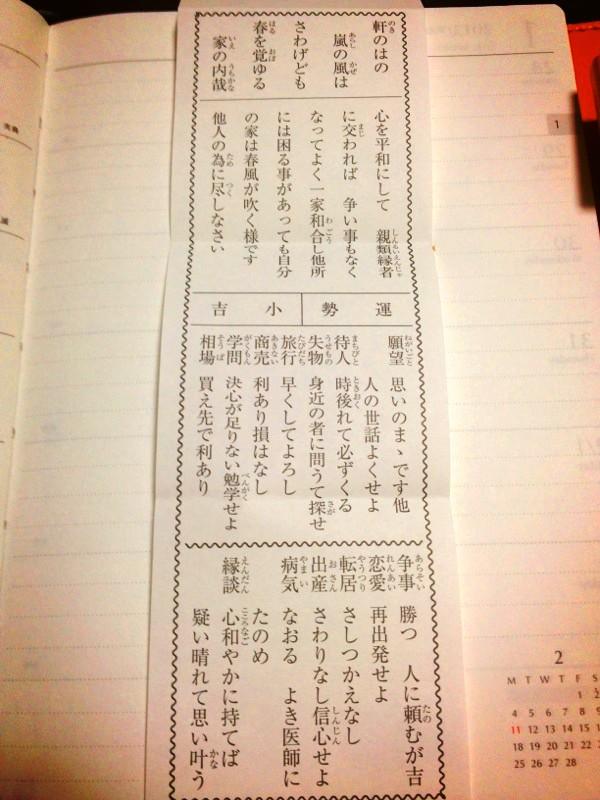 軒のはの
嵐の風は
さわげども
春を覚ゆる
家の内哉
心を平和にして 親類縁者
に交われば 争い事もなく
なってよく一家和合し他所
には困る事があっても自分
の家は春風が吹く様です
他人の為に尽しなさい
運勢
小吉
願望 思いのまゝです他
人の世話よくせよ
待人 時後れて必ずくる
失物 身近の者に問うて探せ
旅行 早くしてよろし
商売 利あり損はなし
学問 決心が足りない勉学せよ
相場 買え先で利あり
争事 勝つ 人に頼むが吉
恋愛 再出発せよ
転居 さしつかえなし
出産 さわりなし信心せよ
病気 なおる よき医師に
たのめ
縁談 心和やかに持てば
疑い晴れて思い叶う
1
28
29
30
31
1
2
M T W T F S
1
4 5 6 7 8
11 12 13 14 15
18 19 20 21 22
25 26 27 28